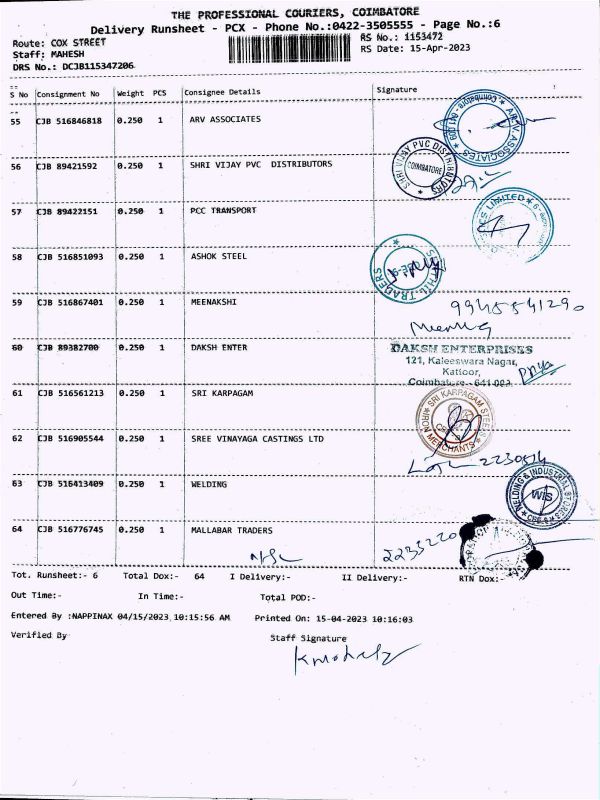 THE PROFESSIONAL COURIERS, COIMBATORE
Delivery Runsheet - PCX - Phone No.:0422-3505555 - Page No.:6
Route: COX STREET
RS No.: 1153472
Staff: MAHESH
RS Date: 15-Apr-2023
DRS No.: DCJB115347206
S No Consignment No Weight PCS Consignee Details Signature
55 CJB 516846818 0.250 1 ARV ASSOCIATES
ARV ASSOCIATES
56 CJB 89421592 0.250 1 SHRI VIJAY PVC DISTRIBUTORS
SHRI VIJAY PVC DISTRIBUTORS
COIMBATORE
57 CJB 89422151 0.250 1 PCC TRANSPORT
LIMITED
58 CJB 516851093 0.250 1 ASHOK STEEL
TRADERS
59 CJB 516867401 0.250 1 MEENAKSHI
60 CJB 89382700 0.250 1 DAKSH ENTER
DAKSH ENTERPRISES
121, Kaleeswara Nagar,
Kattoor,
Coimbatore - 641 009.
Priya
61 CJB 516561213 0.250 1 SRI KARPAGAM
SRI KARPAGAM STEELS
IRON MERCHANTS
62 CJB 516905544 0.250 1 SREE VINAYAGA CASTINGS LTD
63 CJB 516413409 0.250 1 WELDING
WELDING & INDUSTRIAL STORES
WIS
64 CJB 516776745 0.250 1 MALLABAR TRADERS
Tot. Runsheet:- 6 Total Dox:- 64 I Delivery:- II Delivery:- RTN Dox:-
Out Time:- In Time:- Total POD:-
Entered By :NAPPINAX 04/15/2023 10:15:56 AM Printed On: 15-04-2023 10:16:03
Verified By Staff Signature